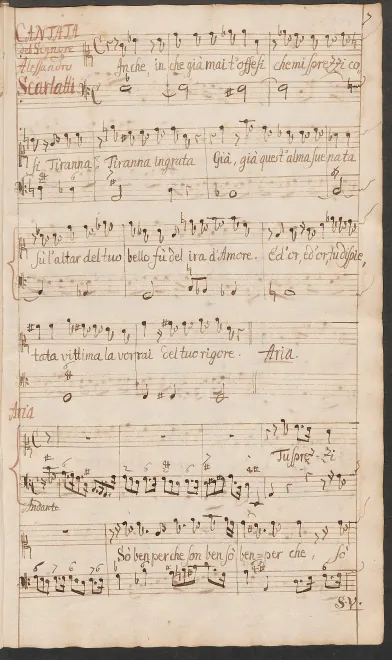 CANTATA
del Signore
Alessandro
Scarlatti
In che, in che già mai t'offesi che mi sprezzi co
si Tiranna Tiranna ingrata Già, già quest'alma sue nata
sù l'altar del tuo bello fù del ira d'Amore. Ed or, ed or fu
tata vittima la vorrai del tuo rigore. Aria.
Aria
Tu sprez-zi
Andante
Sò ben perche son ben sò ben per che, sò
S.V.